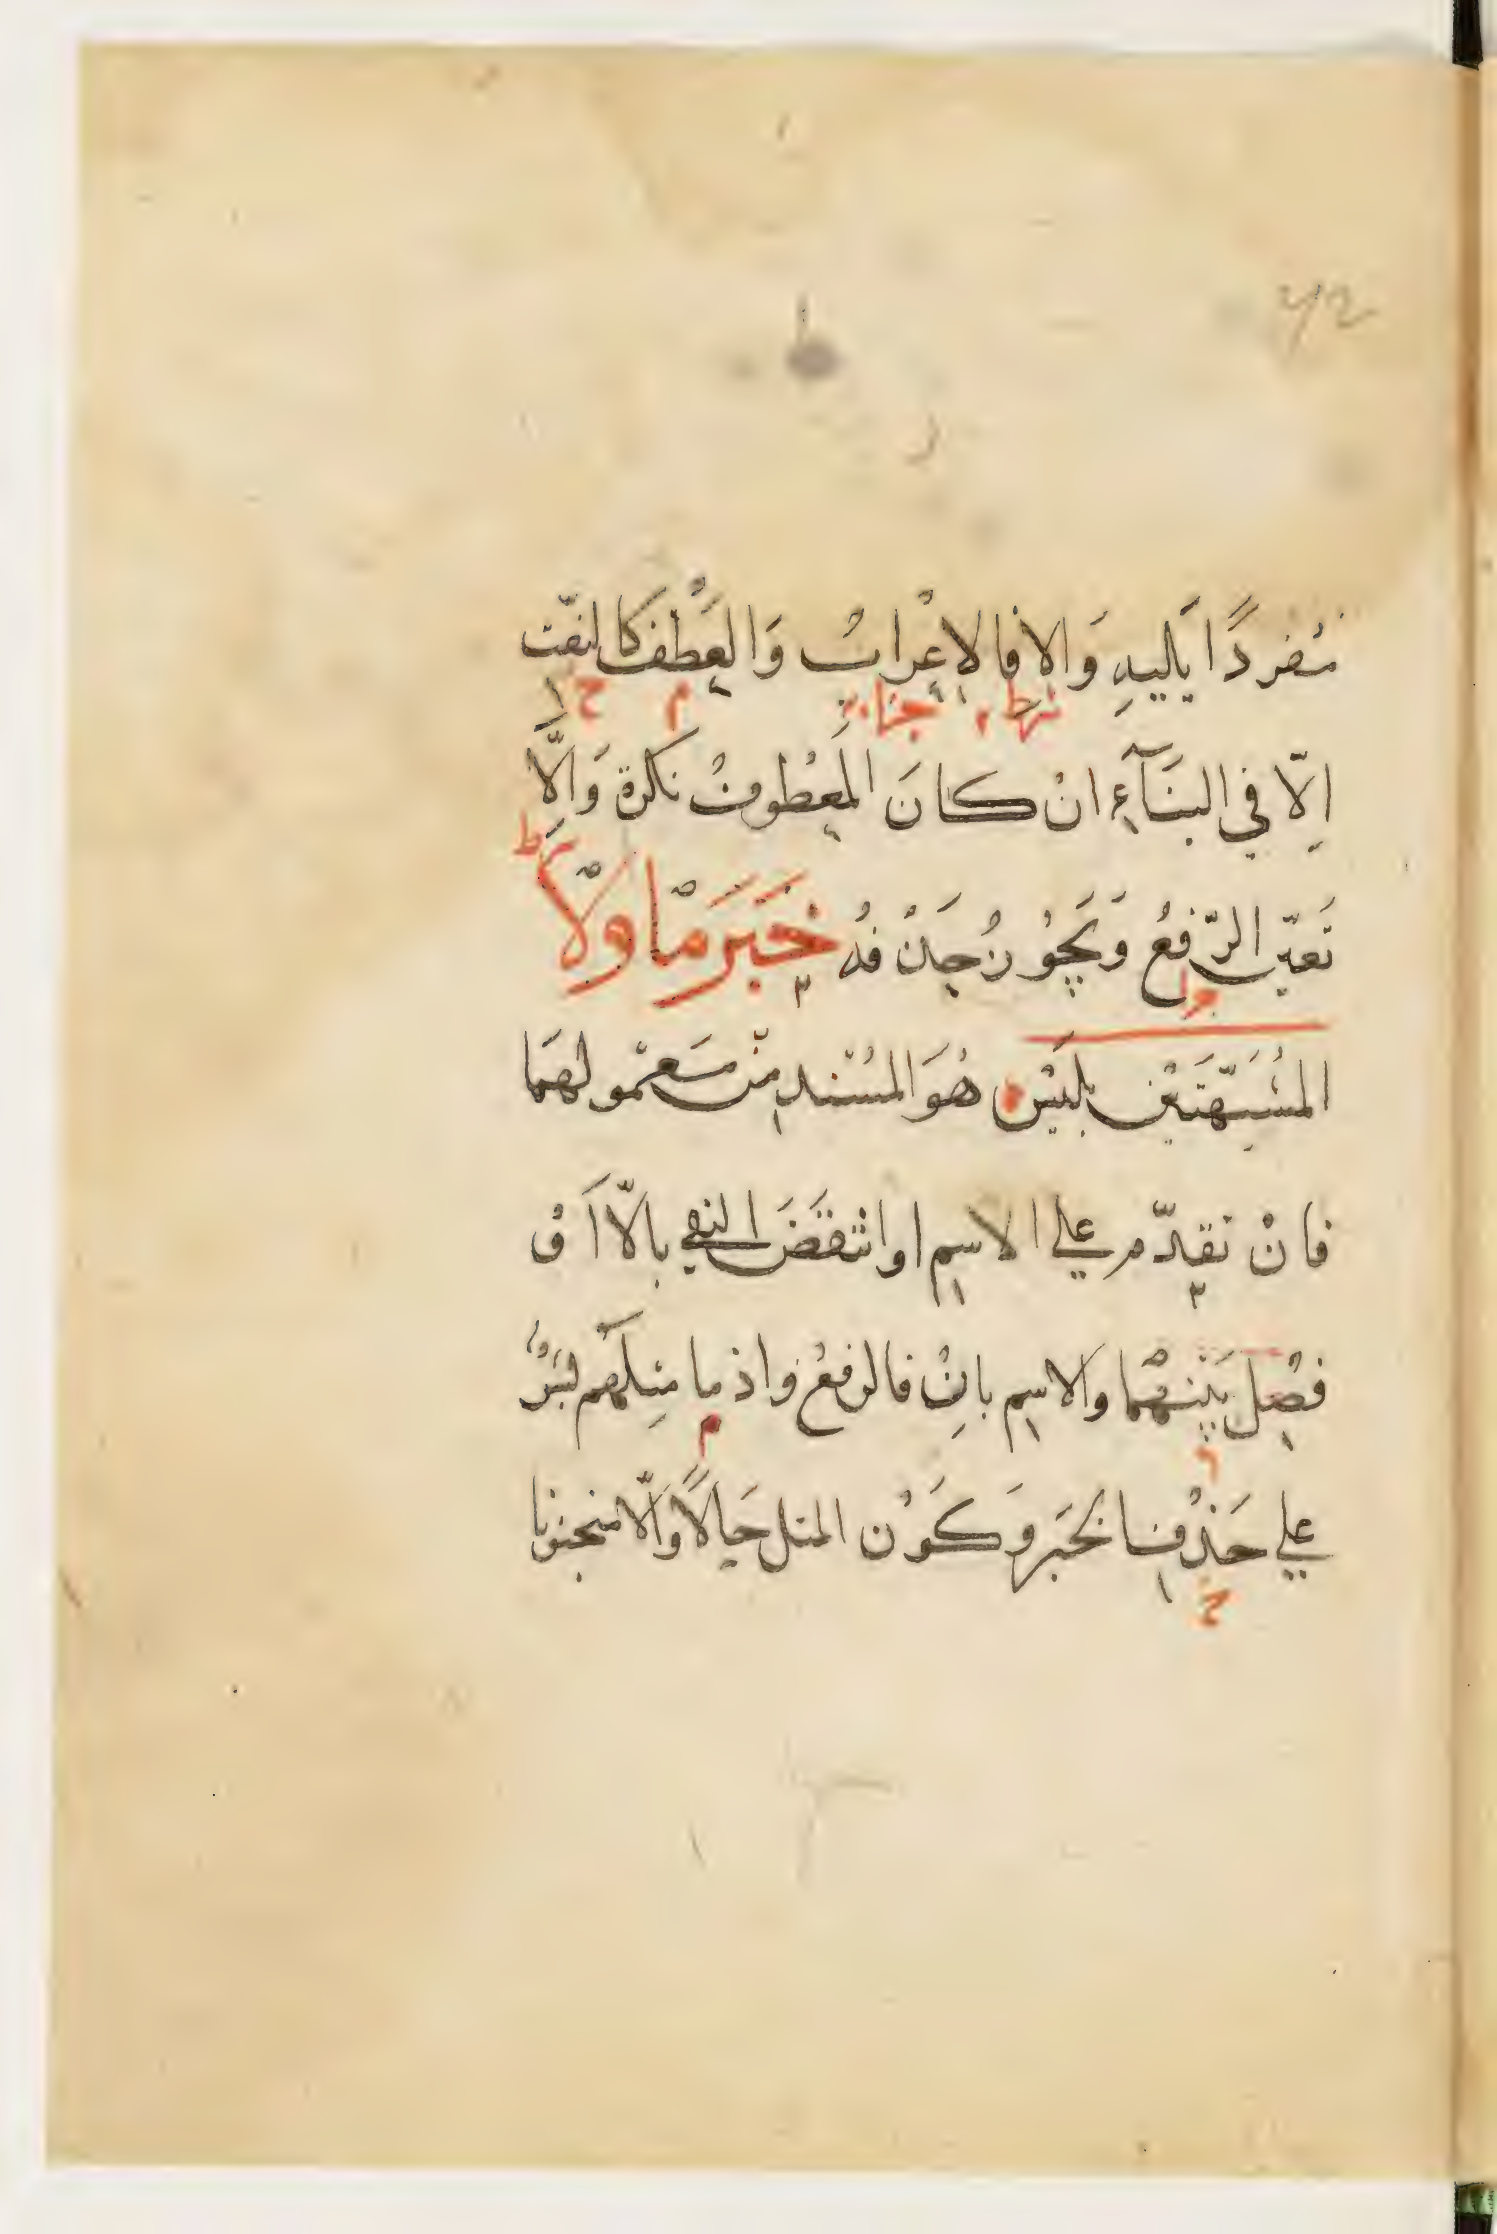 42
مُفردًا يَليهِ وَالا فالاِعْرابُ وَالعَطْف كالنعّت
شرط جزاء م ح
اِلّا في البنَآءِ انْ كانَ المَعْطوفُ نكرة وَالِّا
شرط
تَعيّن الرّفعُ وَيَجُوْزُ حَذْفُه خَبَر مَا ولَا
جزا
المُشَبّهَتَيْن بلَيْسَ هُوَ المُسْند مِنْ مَعْمولهمَا
فانْ تقدّم علي الاسم او انْتقَضَ النفي بالّا اَوْ
فصُل بَيْنهُما والاسم باِنْ فالرفعُ واذ ما مِثلَهُم بَشَرٌ
م
علي حَذْف الخَبَر وَكَوْن المثل حَالًا والّا منجنونا
ح